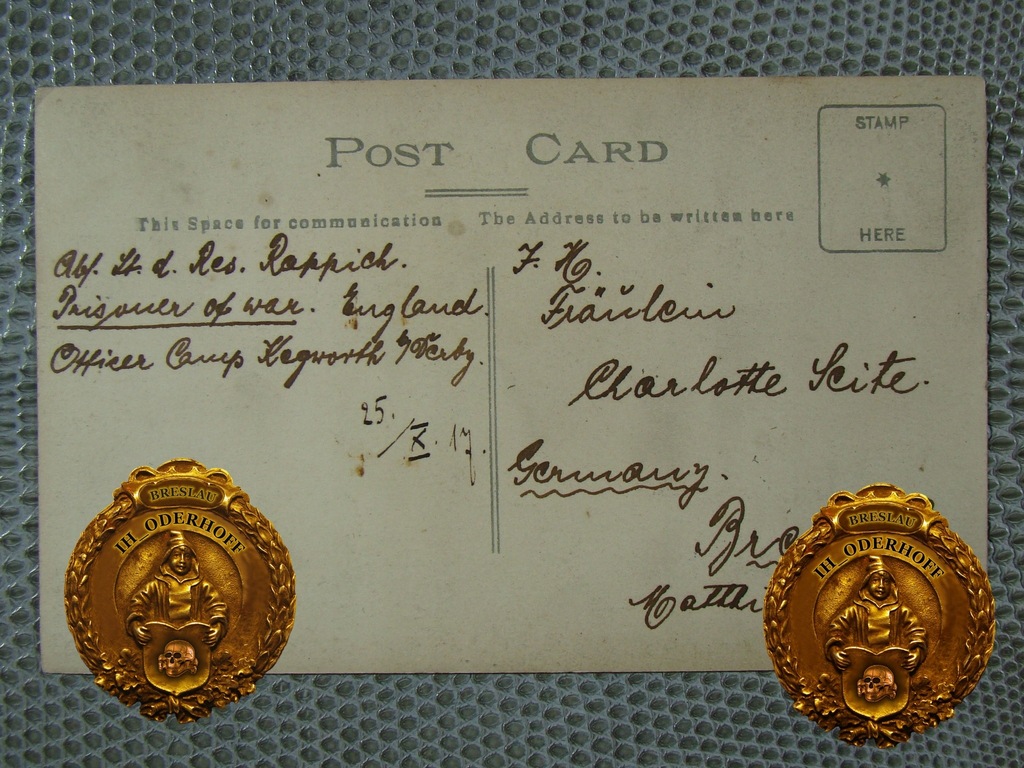 POST CARD
STAMP
HERE
This Space for communication
The Address to be written here
Abs. Lt. d. Res. Rappich.
Prisoner of war. England.
Officer Camp Kegworth b/Derby.
25. / X. 17.
F. H.
Fräulein
Charlotte Seite.
Germany.
BRESLAU
IH_ODERHOFF
BRESLAU
IH_ODERHOFF